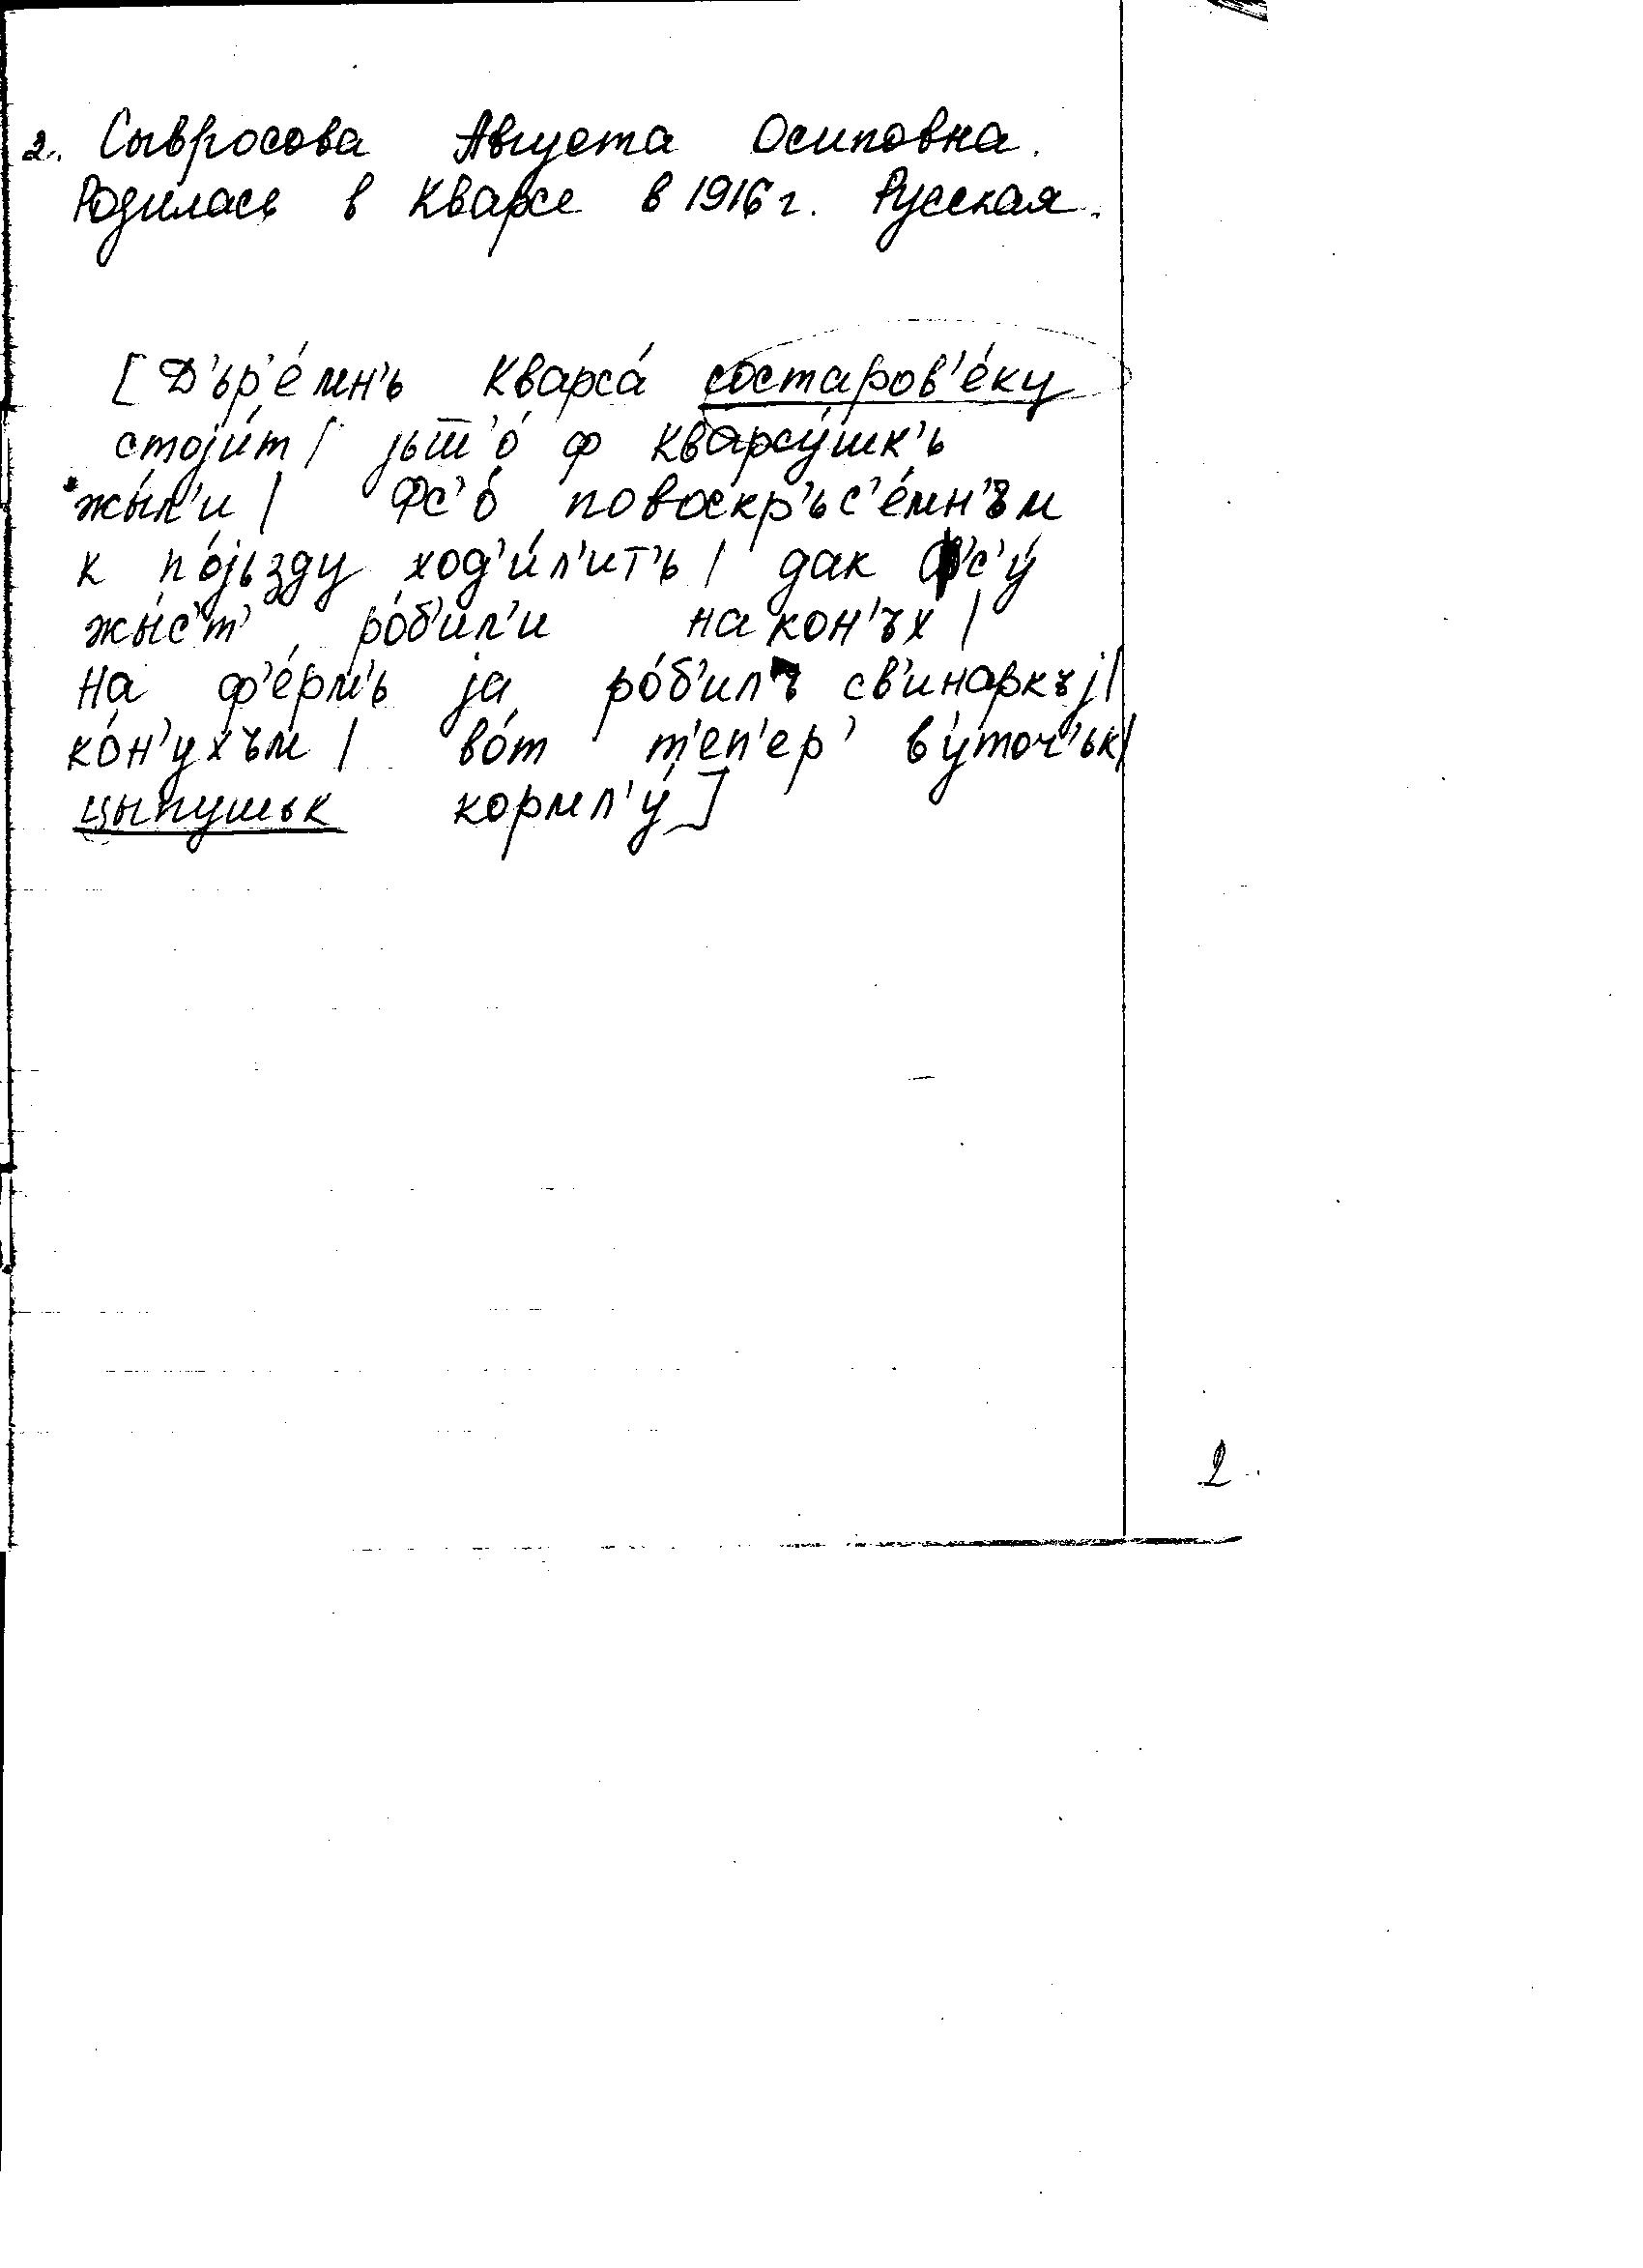 2. Сывросова Августа Осиповна.
Родилась в Кварсе в 1916 г. Русская.
[Д'ьр'е́мн'ь Кварса́ состаров'е́ку
стоји́т / јьт̅'о́ ф кварсу́шк'ь
жы́л'и / Фс'о́ повоскр'ьс'е́мн'ъм
к по́јьзду ход'и́л'ит'ь / дак фс'у́
жы́с'т' ро́б'ил'и на кон'ъх /
На ф'е́рм'ь ја ро́б'илъ св'инаркъј/
ко́н'ухъм / во́т т'еп'ер' ву́точ'ьк/
цыпушък кормл'у́]
2